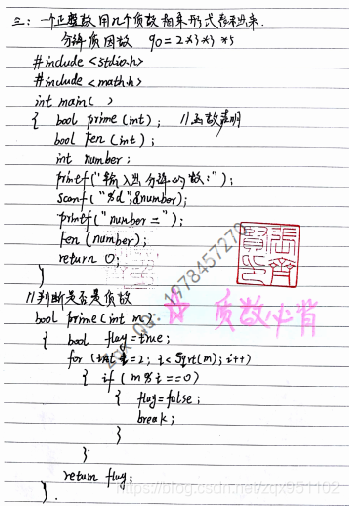 三：一个正整数用几个质数相乘形式表示出来.
分解质因数 90=2*3*3*5
#include <stdio.h>
#include <math.h>
int main( )
{ bool prime(int); //函数声明
bool fen(int);
int number;
printf("输入出分解的数:");
scanf("%d",&number);
printf("number=");
fen(number);
return 0;
}
//判断是否是质数
☆ 质数必背
bool prime(int m)
{ bool flag=true;
for (int i=2; i<sqrt(m); i++)
{ if (m%i==0)
{ flag=false;
break;
}
}
return flag;
}.
https://blog.csdn.net/zqx951102